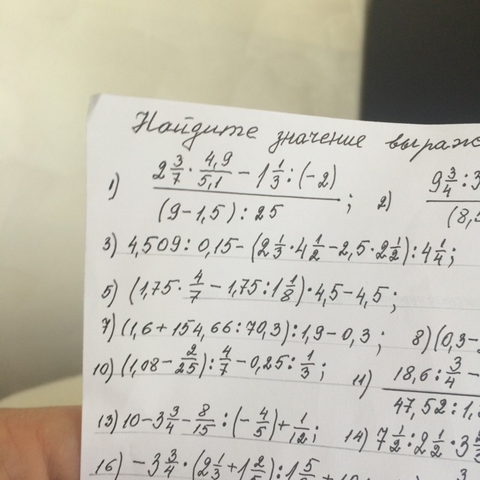 Найдите значение выраж
1) (2 3/7 · 4,9/5,1 − 1 1/3 : (−2)) / ((9−1,5) : 25) ; 2) 9 3/4 : 3 / (8,
3) 4,509 : 0,15 − (2 1/3 · 4 1/2 − 2,5 · 2 1/2) : 4 1/4 ;
5) (1,75 · 4/7 − 1,75 : 1 1/8) · 4,5 − 4,5 ;
7) (1,6 + 154,66 : 70,3) : 1,9 − 0,3 ; 8) (0,3 −
10) (1,08 − 2/25) : 4/7 − 0,25 : 1/3 ; 11) 18,6 : 3/4 − / 47,52 : 1,
13) 10 − 3 3/4 − 8/15 : (−4/5) + 1/12 ; 14) 7 1/2 : 2 1/2 · 3
16) −3 3/4 · (2 1/3 + 1 2/5) : 1 5